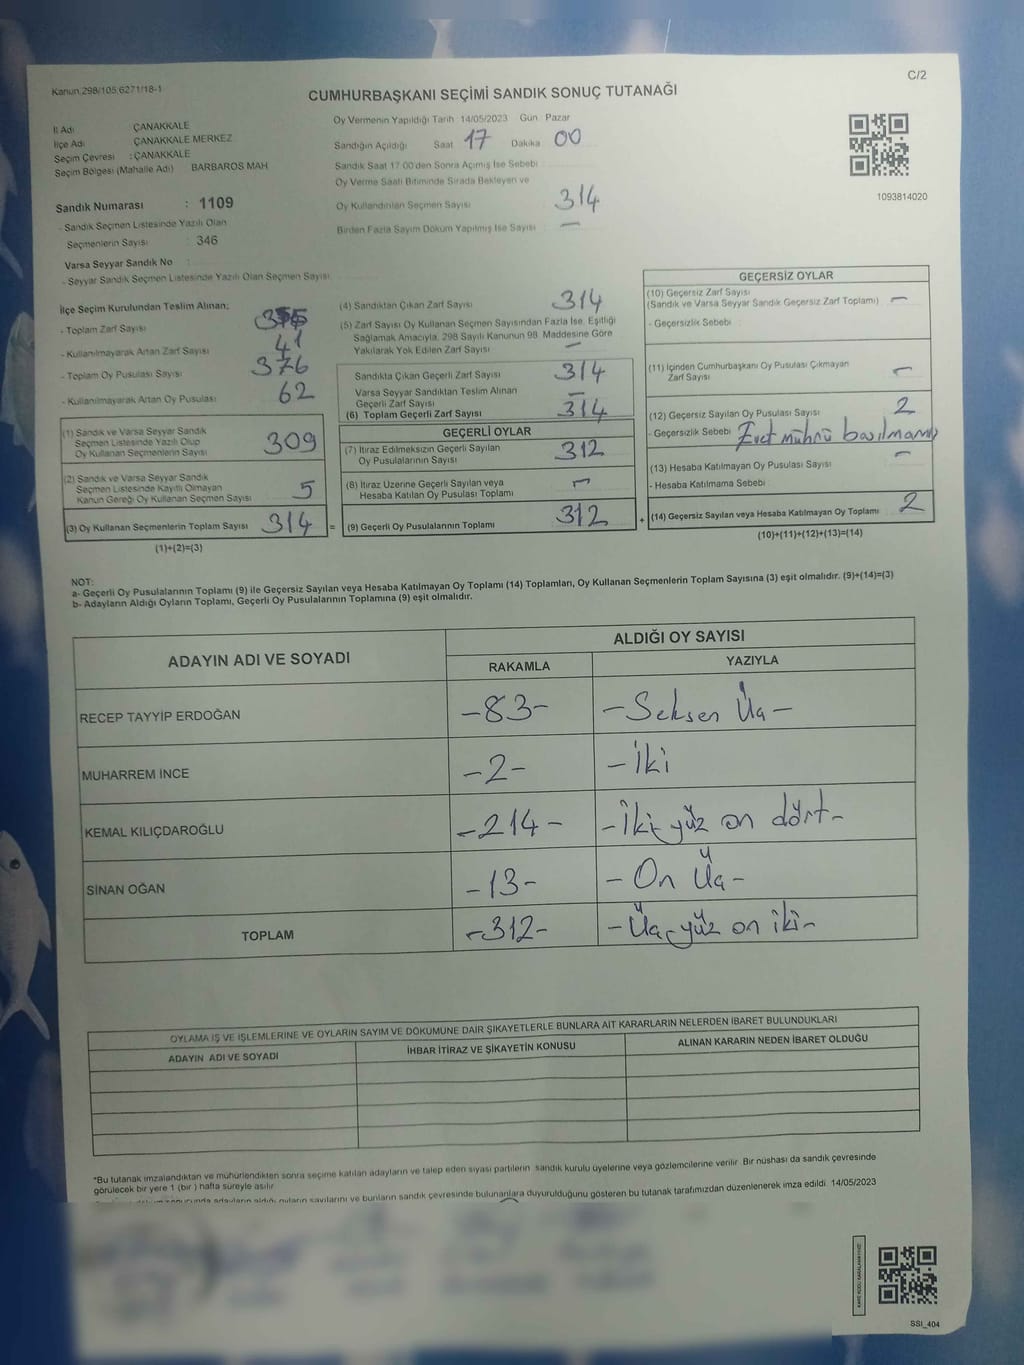 Kanun 298/105 6271/18-1
C/2
CUMHURBAŞKANI SEÇİMİ SANDIK SONUÇ TUTANAĞI
İl Adı ÇANAKKALE
İlçe Adı ÇANAKKALE MERKEZ
Seçim Çevresi : ÇANAKKALE
Seçim Bölgesi (Mahalle Adı) BARBAROS MAH
Sandık Numarası : 1109
- Sandık Seçmen Listesinde Yazılı Olan
Seçmenlerin Sayısı 346
Varsa Seyyar Sandık No :
- Seyyar Sandık Seçmen Listesinde Yazılı Olan Seçmen Sayısı
Oy Vermenin Yapıldığı Tarih : 14/05/2023 Gün : Pazar
Sandığın Açıldığı Saat 17 Dakika 00
Sandık Saat 17 00'den Sonra Açımış İse Sebebi
Oy Verme Saati Bitiminde Sırada Bekleyen ve
Oy Kullandırılan Seçmen Sayısı 314
Birden Fazla Sayım Döküm Yapılmış İse Sayısı —
1093814020
İlçe Seçim Kurulundan Teslim Alınan;
- Toplam Zarf Sayısı
- Kullanılmayarak Artan Zarf Sayısı 41
- Toplam Oy Pusulası Sayısı 376
- Kullanılmayarak Artan Oy Pusulası 62
(1) Sandık ve Varsa Seyyar Sandık
Seçmen Listesinde Yazılı Olup
Oy Kullanan Seçmenlerin Sayısı 309
(2) Sandık ve Varsa Seyyar Sandık
Seçmen Listesinde Kayıtlı Olmayan
Kanun Gereği Oy Kullanan Seçmen Sayısı 5
(3) Oy Kullanan Seçmenlerin Toplam Sayısı 314 =
(1)+(2)=(3)
(4) Sandıktan Çıkan Zarf Sayısı 314
(5) Zarf Sayısı Oy Kullanan Seçmen Sayısından Fazla İse, Eşitliği
Sağlamak Amacıyla, 298 Sayılı Kanunun 98. Maddesine Göre
Yakılarak Yok Edilen Zarf Sayısı —
Sandıkta Çıkan Geçerli Zarf Sayısı 314
Varsa Seyyar Sandıktan Teslim Alınan
Geçerli Zarf Sayısı —
(6) Toplam Geçerli Zarf Sayısı 314
GEÇERLİ OYLAR
(7) İtiraz Edilmeksizin Geçerli Sayılan
Oy Pusulalarının Sayısı 312
(8) İtiraz Üzerine Geçerli Sayılan veya
Hesaba Katılan Oy Pusulası Toplamı —
(9) Geçerli Oy Pusulalarının Toplamı 312 +
GEÇERSİZ OYLAR
(10) Geçersiz Zarf Sayısı
(Sandık ve Varsa Seyyar Sandık Geçersiz Zarf Toplamı) —
- Geçersizlik Sebebi :
(11) İçinden Cumhurbaşkanı Oy Pusulası Çıkmayan
Zarf Sayısı —
(12) Geçersiz Sayılan Oy Pusulası Sayısı 2
- Geçersizlik Sebebi Evet mührü basılmamış
(13) Hesaba Katılmayan Oy Pusulası Sayısı —
- Hesaba Katılmama Sebebi
(14) Geçersiz Sayılan veya Hesaba Katılmayan Oy Toplamı 2
(10)+(11)+(12)+(13)=(14)
NOT:
a- Geçerli Oy Pusulalarının Toplamı (9) ile Geçersiz Sayılan veya Hesaba Katılmayan Oy Toplamı (14) Toplamları, Oy Kullanan Seçmenlerin Toplam Sayısına (3) eşit olmalıdır. (9)+(14)=(3)
b- Adayların Aldığı Oyların Toplamı, Geçerli Oy Pusulalarının Toplamına (9) eşit olmalıdır.
ADAYIN ADI VE SOYADI ALDIĞI OY SAYISI
RAKAMLA YAZIYLA
RECEP TAYYİP ERDOĞAN -83- - Seksen Üç -
MUHARREM İNCE -2- - İki
KEMAL KILIÇDAROĞLU -214- - İki yüz on dört -
SİNAN OĞAN -13- - On Üç -
TOPLAM -312- - Üç yüz on iki -
OYLAMA İŞ VE İŞLEMLERİNE VE OYLARIN SAYIM VE DÖKÜMÜNE DAİR ŞİKAYETLERLE BUNLARA AİT KARARLARIN NELERDEN İBARET BULUNDUKLARI
ADAYIN ADI VE SOYADI İHBAR İTİRAZ VE ŞİKAYETİN KONUSU ALINAN KARARIN NEDEN İBARET OLDUĞU
*Bu tutanak imzalandıktan ve mühürlendikten sonra seçime katılan adayların ve talep eden siyasi partilerin sandık kurulu üyelerine veya gözlemcilerine verilir. Bir nüshası da sandık çevresinde
görülecek bir yere 1 (bir) hafta süreyle asılır
adayların aldığı oyların sayılarını ve bunların sandık çevresinde bulunanlara duyurulduğunu gösteren bu tutanak tarafımızdan düzenlenerek imza edildi. 14/05/2023
SSI_404